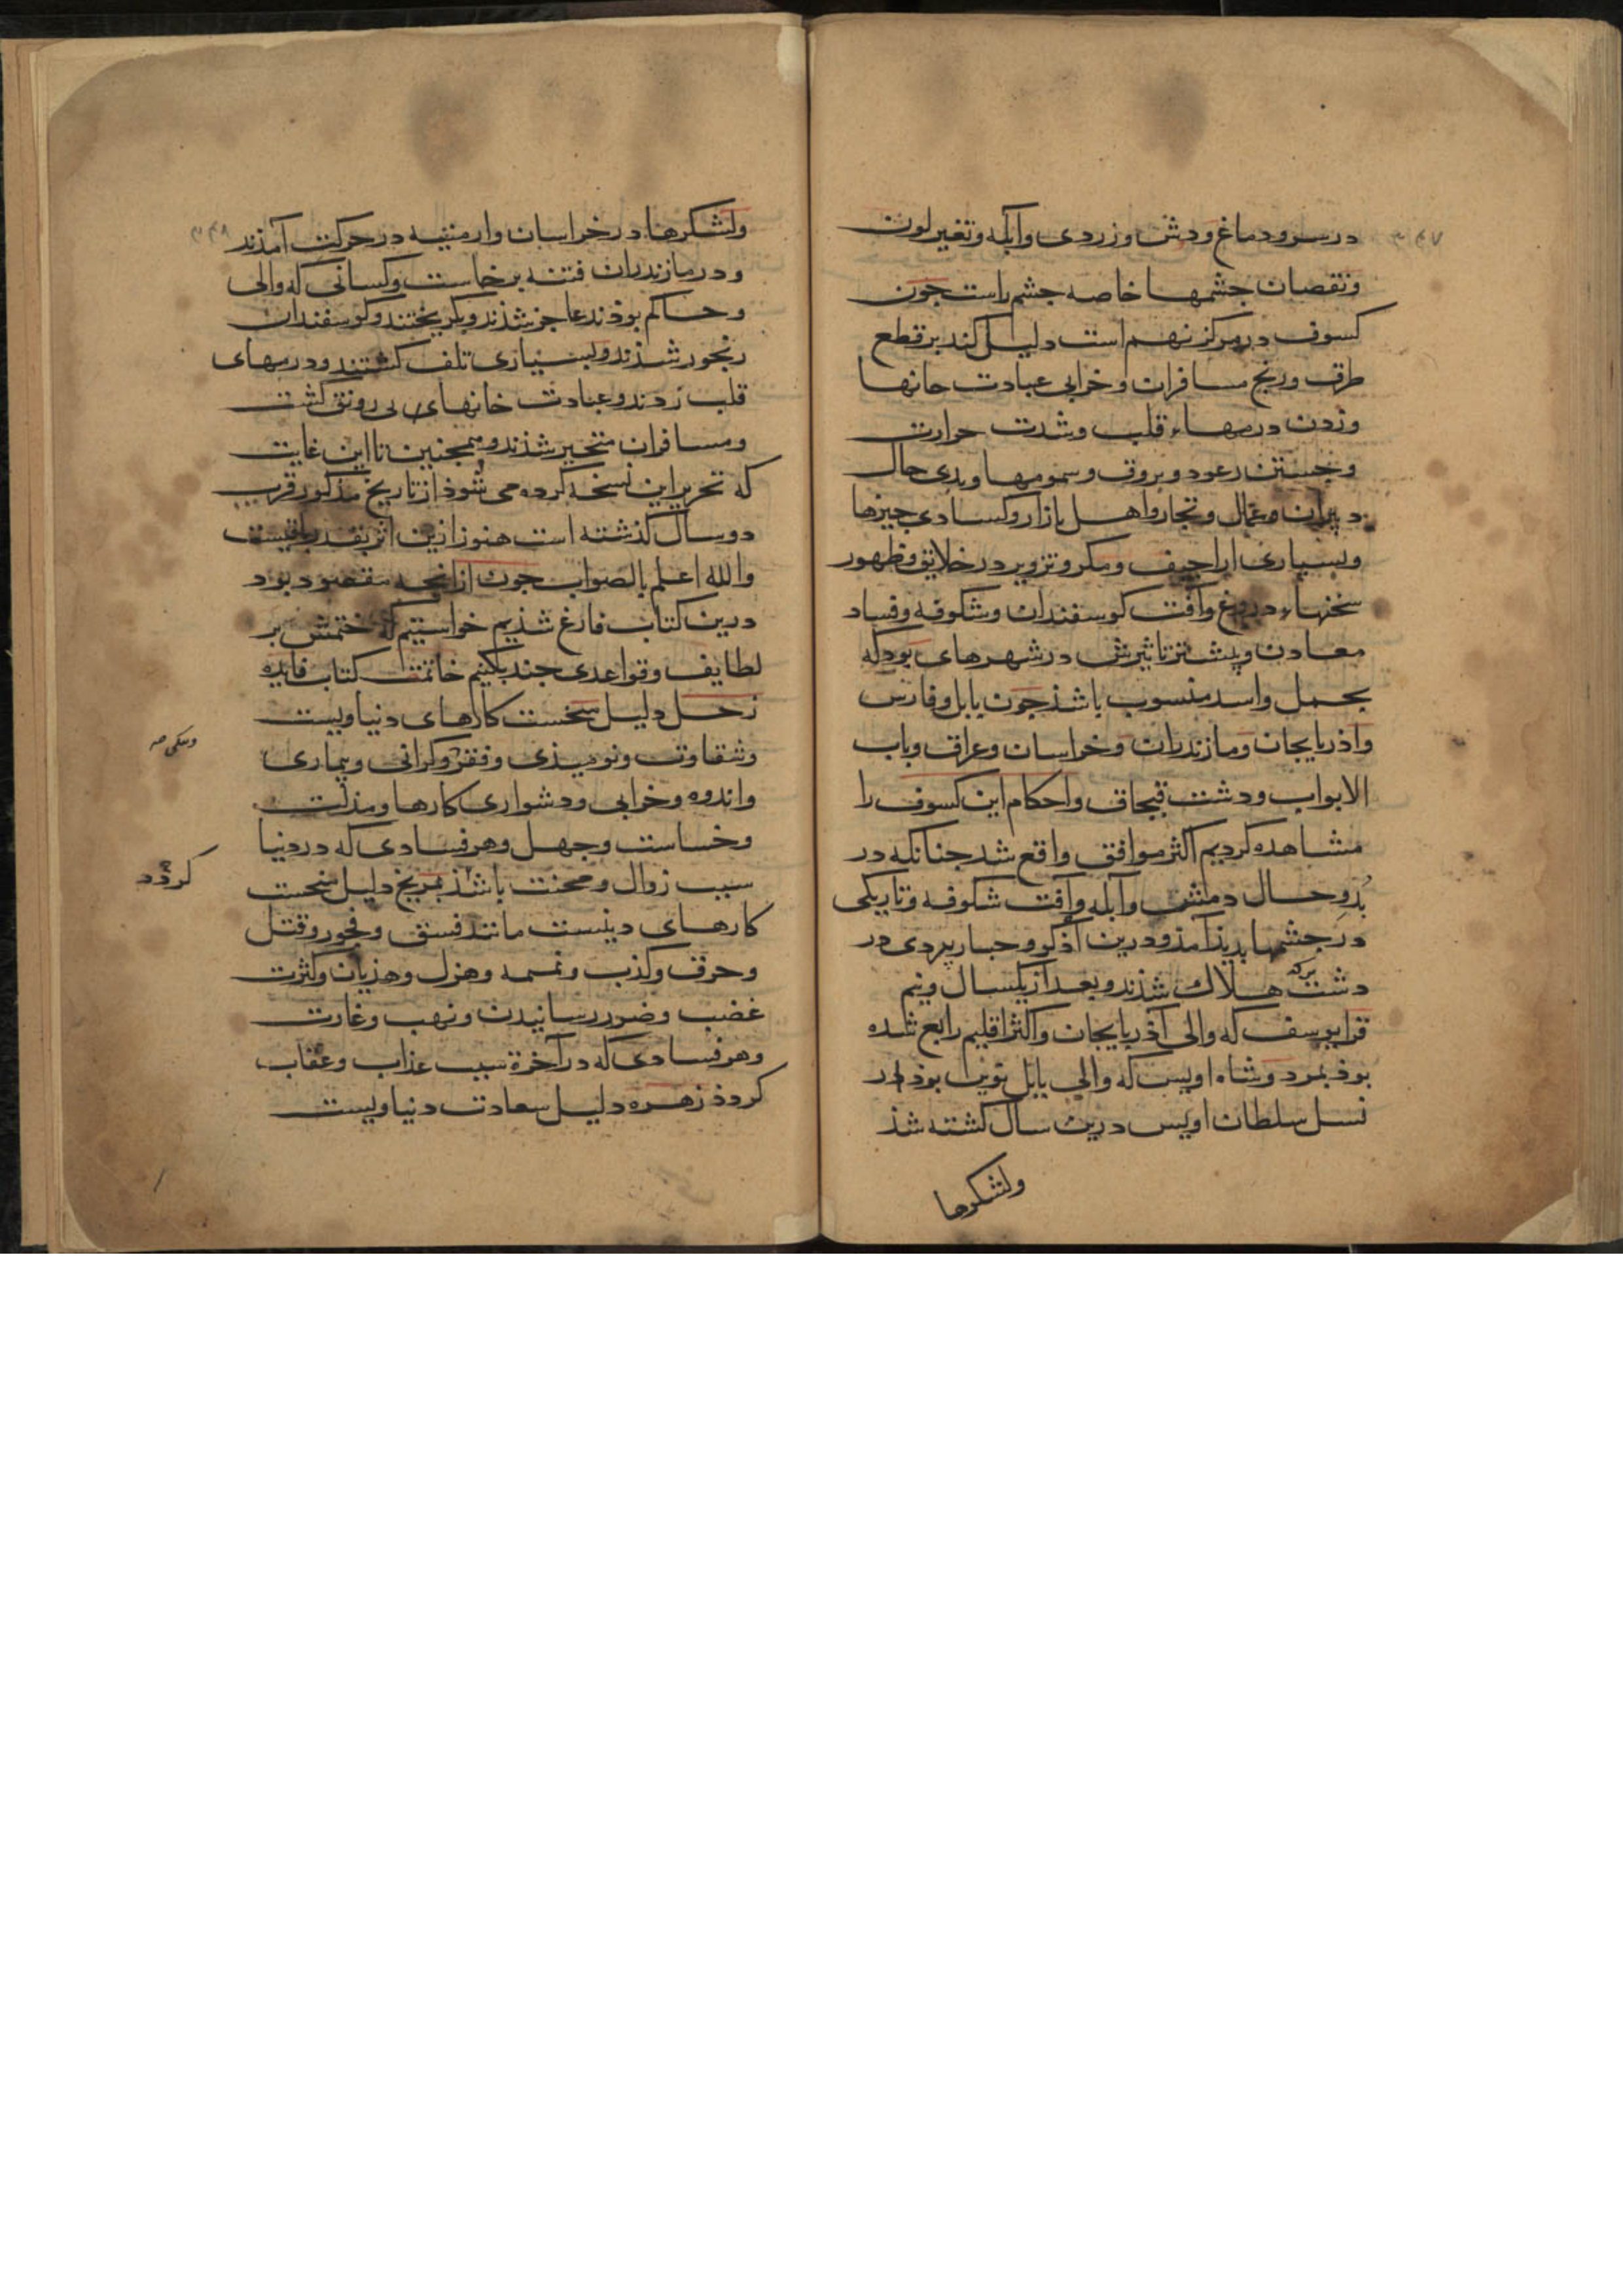 ۳۴۷
در سر و دماغ و دش و زردی و آبله و تغیر لون
و نقصان جشمها خاصه جشم راست جون
کسوف در مرکز نهم است دلیل کند بر قطع
طرق و رنج مسافران و خرابی عبادت خانها
و زدن درمهاء قلب و شدت حرارت
و جستن رعود و بروق و سمومها و بدی حال
دبیران و عمال و تجار و اهل بازار و کسادی جیزها
و بسیاری اراجیف و مکر و تزویر در خلایق و ظهور
سخنهاء دروغ و آفت کوسفندان و شکوفه و فساد
معادن و بیشتر تاثیرش در شهرهای بود که
بحمل و اسد منسوب باشذ جون بابل و فارس
و اذربایجان و مازندران و خراسان و عراق و باب
الابواب و دشت قبجاق و احکام این کسوف را
مشاهده کردیم اکثر موافق واقع شد جنانکه در
بدو حال دمش و آبله و آفت شکوفه و تاریکی
در جشمها بدیذ آمذ و درین آذکو و جبار بردی در
دشت برکه هلاک شذند و بعد از یکسال و نیم
قرا یوسف که والی آذربایجان و اکثر اقلیم رابع شده
بوذ بمرد و شاه اویس که والی بابل نوین بوذ از
نسل سلطان اویس درین سال کشته شذ
ولشکرها
۳۴۸
ولشکرها در خراسان و ارمنیه در حرکت آمذند
و در مازندران فتنه برخاست و کسانی که والی
و حاکم بوذند عاجز شذند و بکریختند و کوسفندان
رنجور شذند و بسیاری تلف کشتند و درمهای
قلب زدند و عبادت خانهای بی رونق کشت
و مسافران متحیر شذند و همجنین تا این غایت
که تحریر این نسخه کرده می شوذ از تاریخ مذکور قرب
دو سال کذشته است هنوز ازین اثر بقدر باقیست
والله اعلم بالصواب جون از انجه مقصود بود
درین کتاب فارغ شذیم خواستیم که ختمش بر
لطایف و قواعدی جند بکنیم خاتمت کتاب فایده
زحل دلیل نحست کارهای دنیاویست
و شقاوت و نومیذی و فقر و کرانی و بیماری
و اندوه و خرابی و دشواری کارها و مذلت
و خساست و جهل و هر فسادی که در دنیا
سبب زوال و محنت باشذ مریخ دلیل نحست
کردد
کارهای دینست مانند فسق و فجور و قتل
و حرق و کذب و نمیمه و هزل و هذیان و کثرت
غضب و ضرر رسانیدن و نهب و غارت
و هر فسادی که در آخرة سبب عذاب و عقاب
کردذ زهره دلیل سعادت دنیاویست